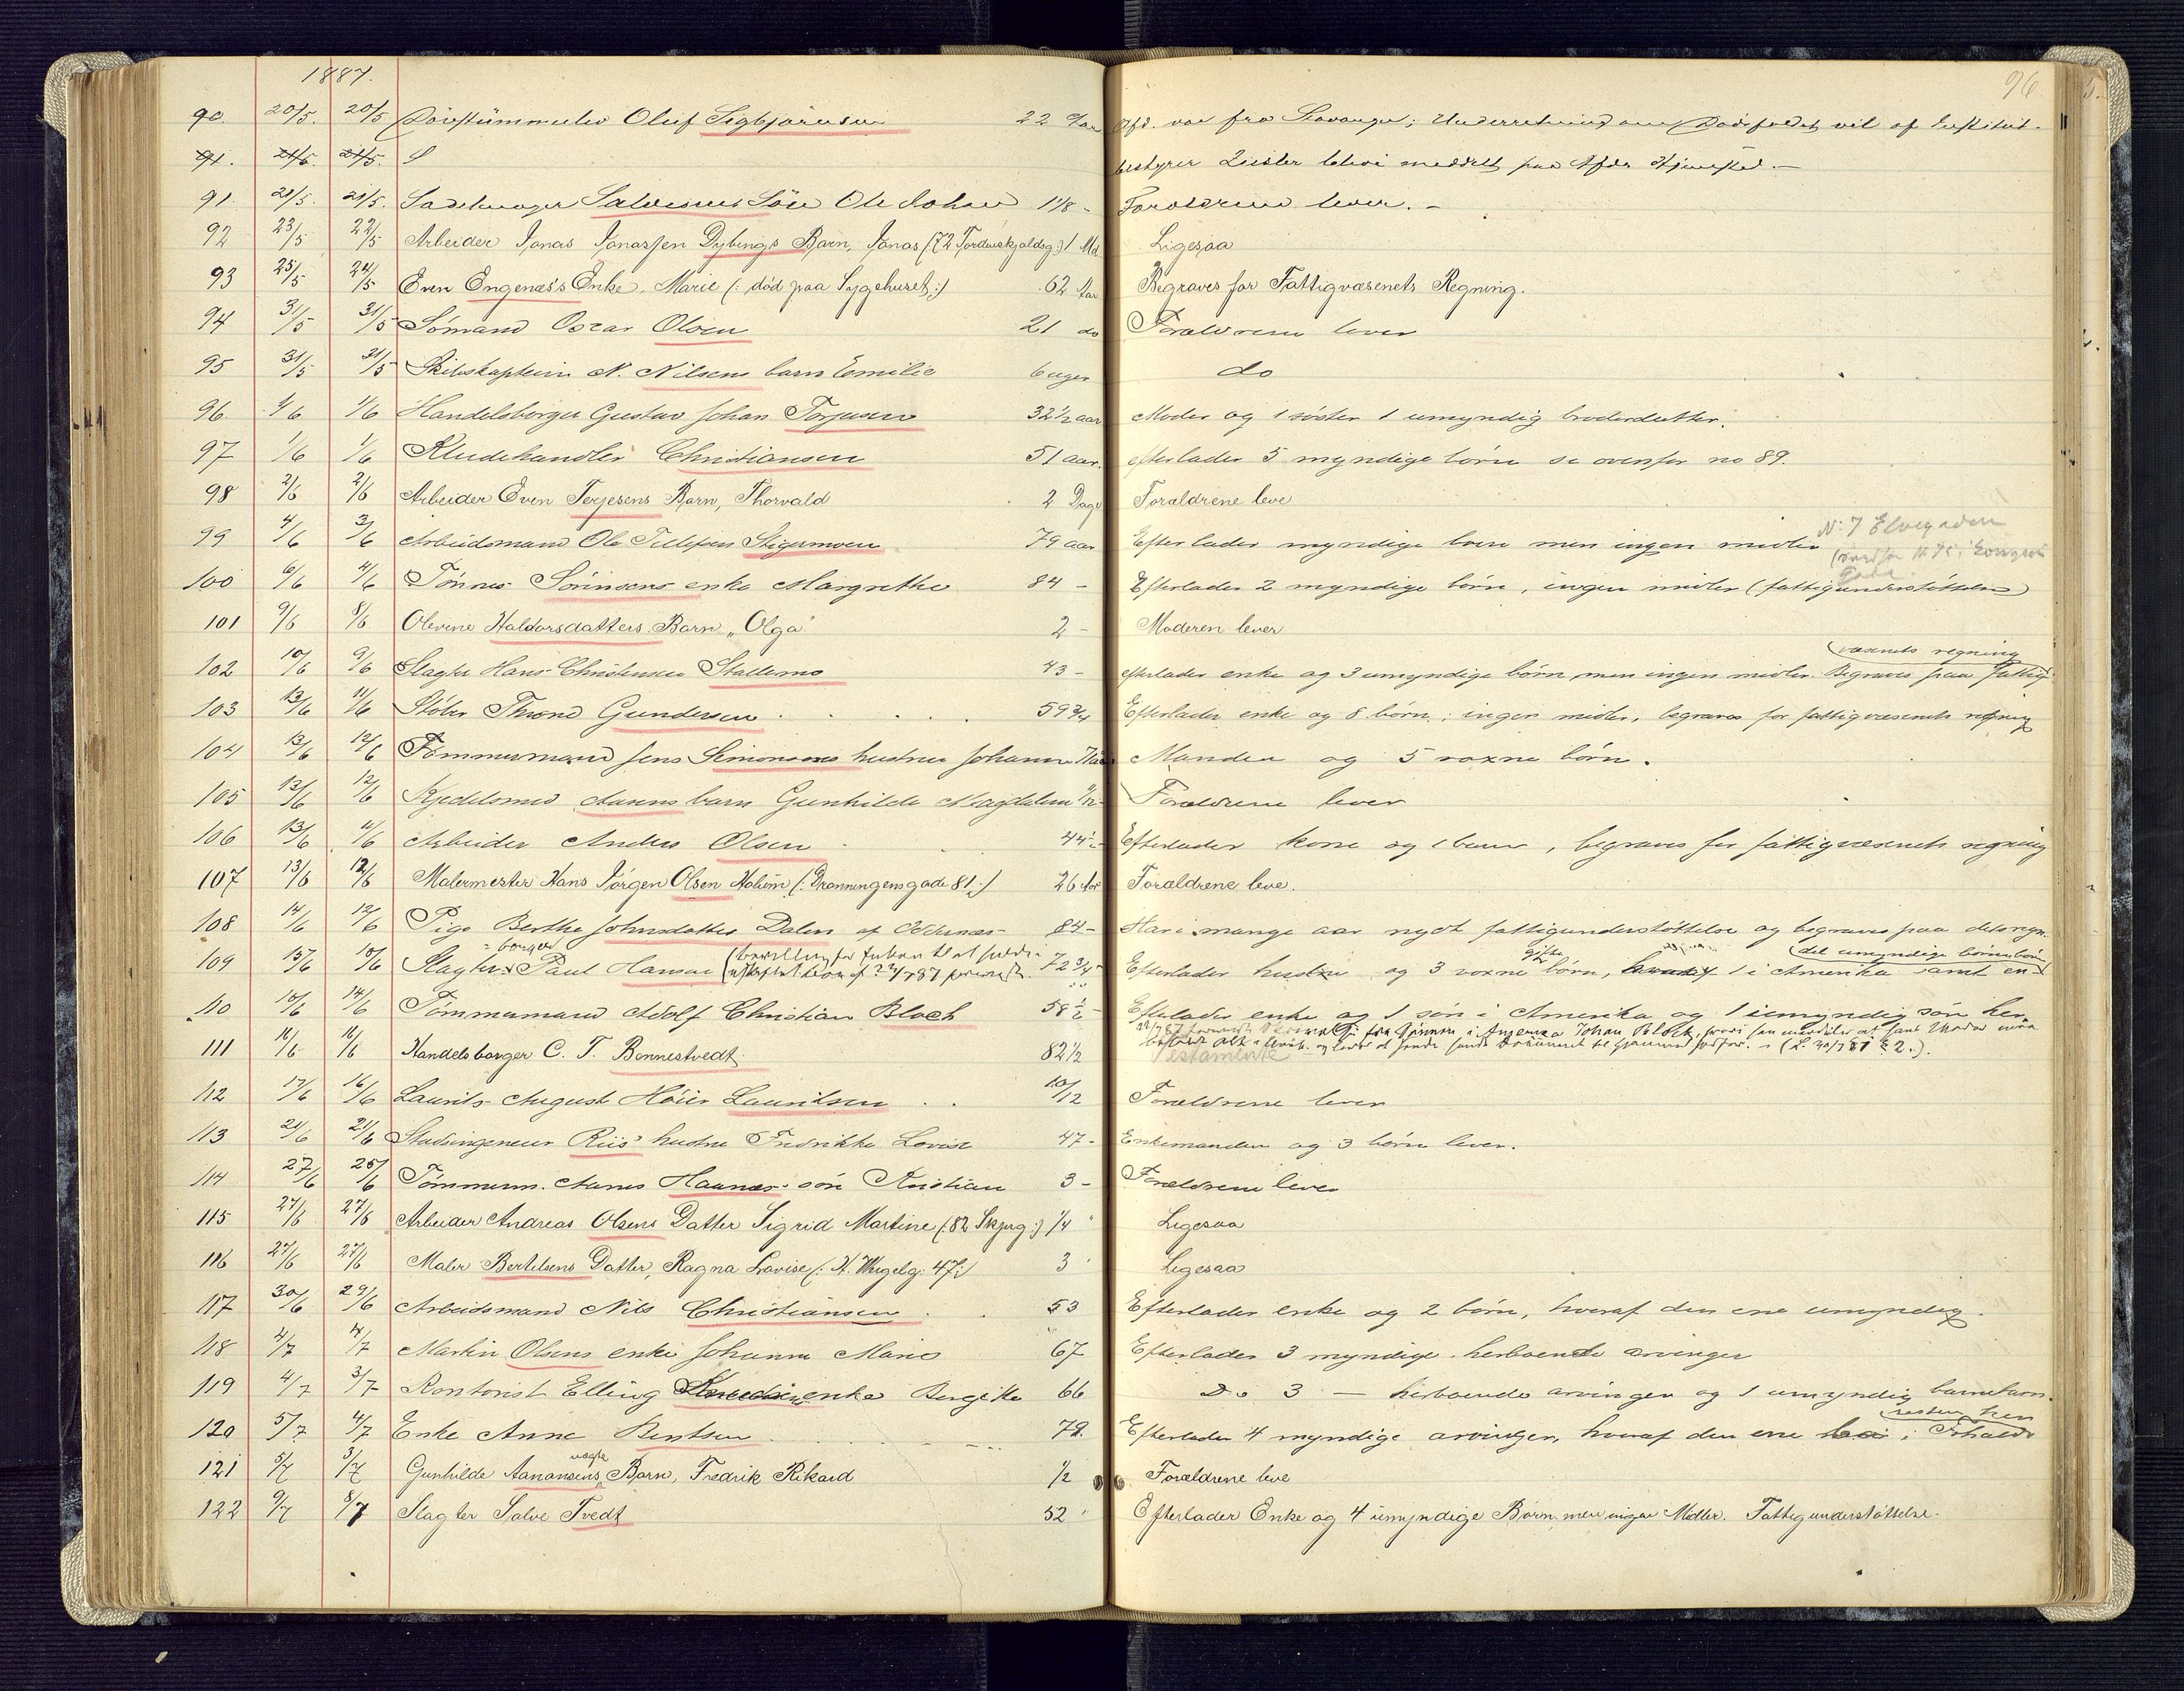 1887.
96
90. 20/5. 20/5 Døvstummelev Oluf Sigbjørnsen 22 Aar Afd. var fra Stavanger; Underretning om Dødsfaldet vil af Institut-
91. 21/5. 21/5. S bestyrer blive meddelt paa Afdes Hjemsted.-
91. 21/5. 21/5. Sadelmager Salvesens Søn Ole Johan 1 1/8 - Forældrene lever. -
92 23/5 22/5 Arbeider Jonas Jonassen Dybings Barn, Jonas (72 Tordenskjoldsg:) 1 Md Ligesaa
93 25/5 24/5 Even Engenæs's Enke, Marie (: død paa Sygehuset:) 62 Aar Begraves for Fattigvæsenets Regning.
94 31/5 31/5 Sømand Oscar Olsen 21 do Forældrene lever
95 31/5 31/5 Skibskaptein N. Nilsens barn Emilie 6 uger do
96. 1/6 1/6 Handelsborger Gustav Johan Torjusen 32 1/2 aar Moder og 1 søster 1 umyndig broderdatter.
97 1/6 1/6 Kludehandler Christiansen 51 aar. efterlader 5 myndige børn se ovenfor no 89.
98 2/6 2/6 Arbeider Even Terjesens Barn, Thorvald 2 Dage Forældrene leve
99 4/6 3/6 Arbeidsmand Ole Tellefsen Stigermoen 79 aar Efterlader myndige børn men ingen midler N: 7 Elvegaden
100 6/6 4/6 Tønnes Sørinsens enke Margrethe 84 - Efterlader 2 myndige børn, ingen midler (fattigunderstøttelse)
101 9/6 8/6 Olevine Haldorsdatters Barn „Olga" 2 - Moderen lever
102 10/6 9/6 Slagter Hans Christensen Stallemo 43 - efterlader enke og 3 umyndige børn, men ingen midler. Begraves paa fattig-
væsenets regning
103 13/6 11/6 Støber Thrond Gundersen 59 3/4 Efterlader enke og 8 børn; ingen midler, begraves for fattigvæsenets regning
104 13/6 12/6 Tømmermand Jens Simonsens hustru Johanne Manden og 5 voxne børn.
105 13/6 12/6 Kjedelsmed Aanens barn Gunhilde Magdalene Forældrene lever
106 13/6 11/6 Arbeider Anders Olsen 44 1/2 Efterlader kone og 1 barn, begraves for fattigvæsenets regning
107 13/6 12/6 Malermester Hans Jørgen Olsen Holum (: Dronningensgade 81:) 26 Aar Forældrene leve.
108 14/6 12/6 Pige Berthe Johnsdatter Dalen af Oddernæs 84 - Har i mange aar nydt fattigunderstøttelse og begraves paa dets regn.
109 15/6 10/6 Slagter-borger Paul Hansen 72 3/4 - Efterlader hustru og 3 voxne gifte børn, hvoraf 1 i Amerika samt en
del umyndige børnebørn
110 15/6 14/6 Tømmermand Adolf Christian Bloch 58 1/2 - Efterlader enke og 1 søn i Amerika og 1 umyndig søn her
111 16/6 16/6 Handelsborger C. T. Bennestvedt 82 1/2 Testamente
112 17/6 16/6 Laurits August Høier Lauritsen 10/12 Forældrene lever
113 21/6 21/6 Stadsingeneur Riis' hustru Fredrikke Lovise 47 - Enkemanden og 3 børn lever.
114 27/6 25/6 Tømmerm. Aanes Haanes søn Kristian 3 - Forældrene lever
115 27/6 27/6 Arbeider Andreas Olsens Datter Sigrid Martine (: 82 Skjærg:) 1/4 " Ligesaa
116 27/6 27/6 Maler Bertelsens Datter, Ragna Lovise (: H. Wergelg. 47:) 3 " Ligesaa
117 30/6 29/6 Arbeidsmand Nils Christiansen 53 Efterlader enke og 2 børn, hvoraf den ene umyndig.
118 4/7 4/7 Martin Olsens enke Johanne Marie 67 Efterlader 3 myndige herboende arvinger
119 4/7 3/7 Kontorist Elling Knudsens enke Bergitte 66 Do 3 — herboende arvinger og 1 umyndig barnebarn.
120 5/7 4/7 Enke Anne Bentsen 79. Efterlader 4 myndige arvinger, hvoraf den ene i
resten her
121 5/7 3/7 Gunhilde Aanonsens uægte Barn, Fredrik Rikard 1/2 Forældrene leve
122 9/7 8/7 Slagter Salve Tvedt 52 " Efterlader Enke og 4 umyndige Børn, men ingen Midler. Fattigunderstøttelse.